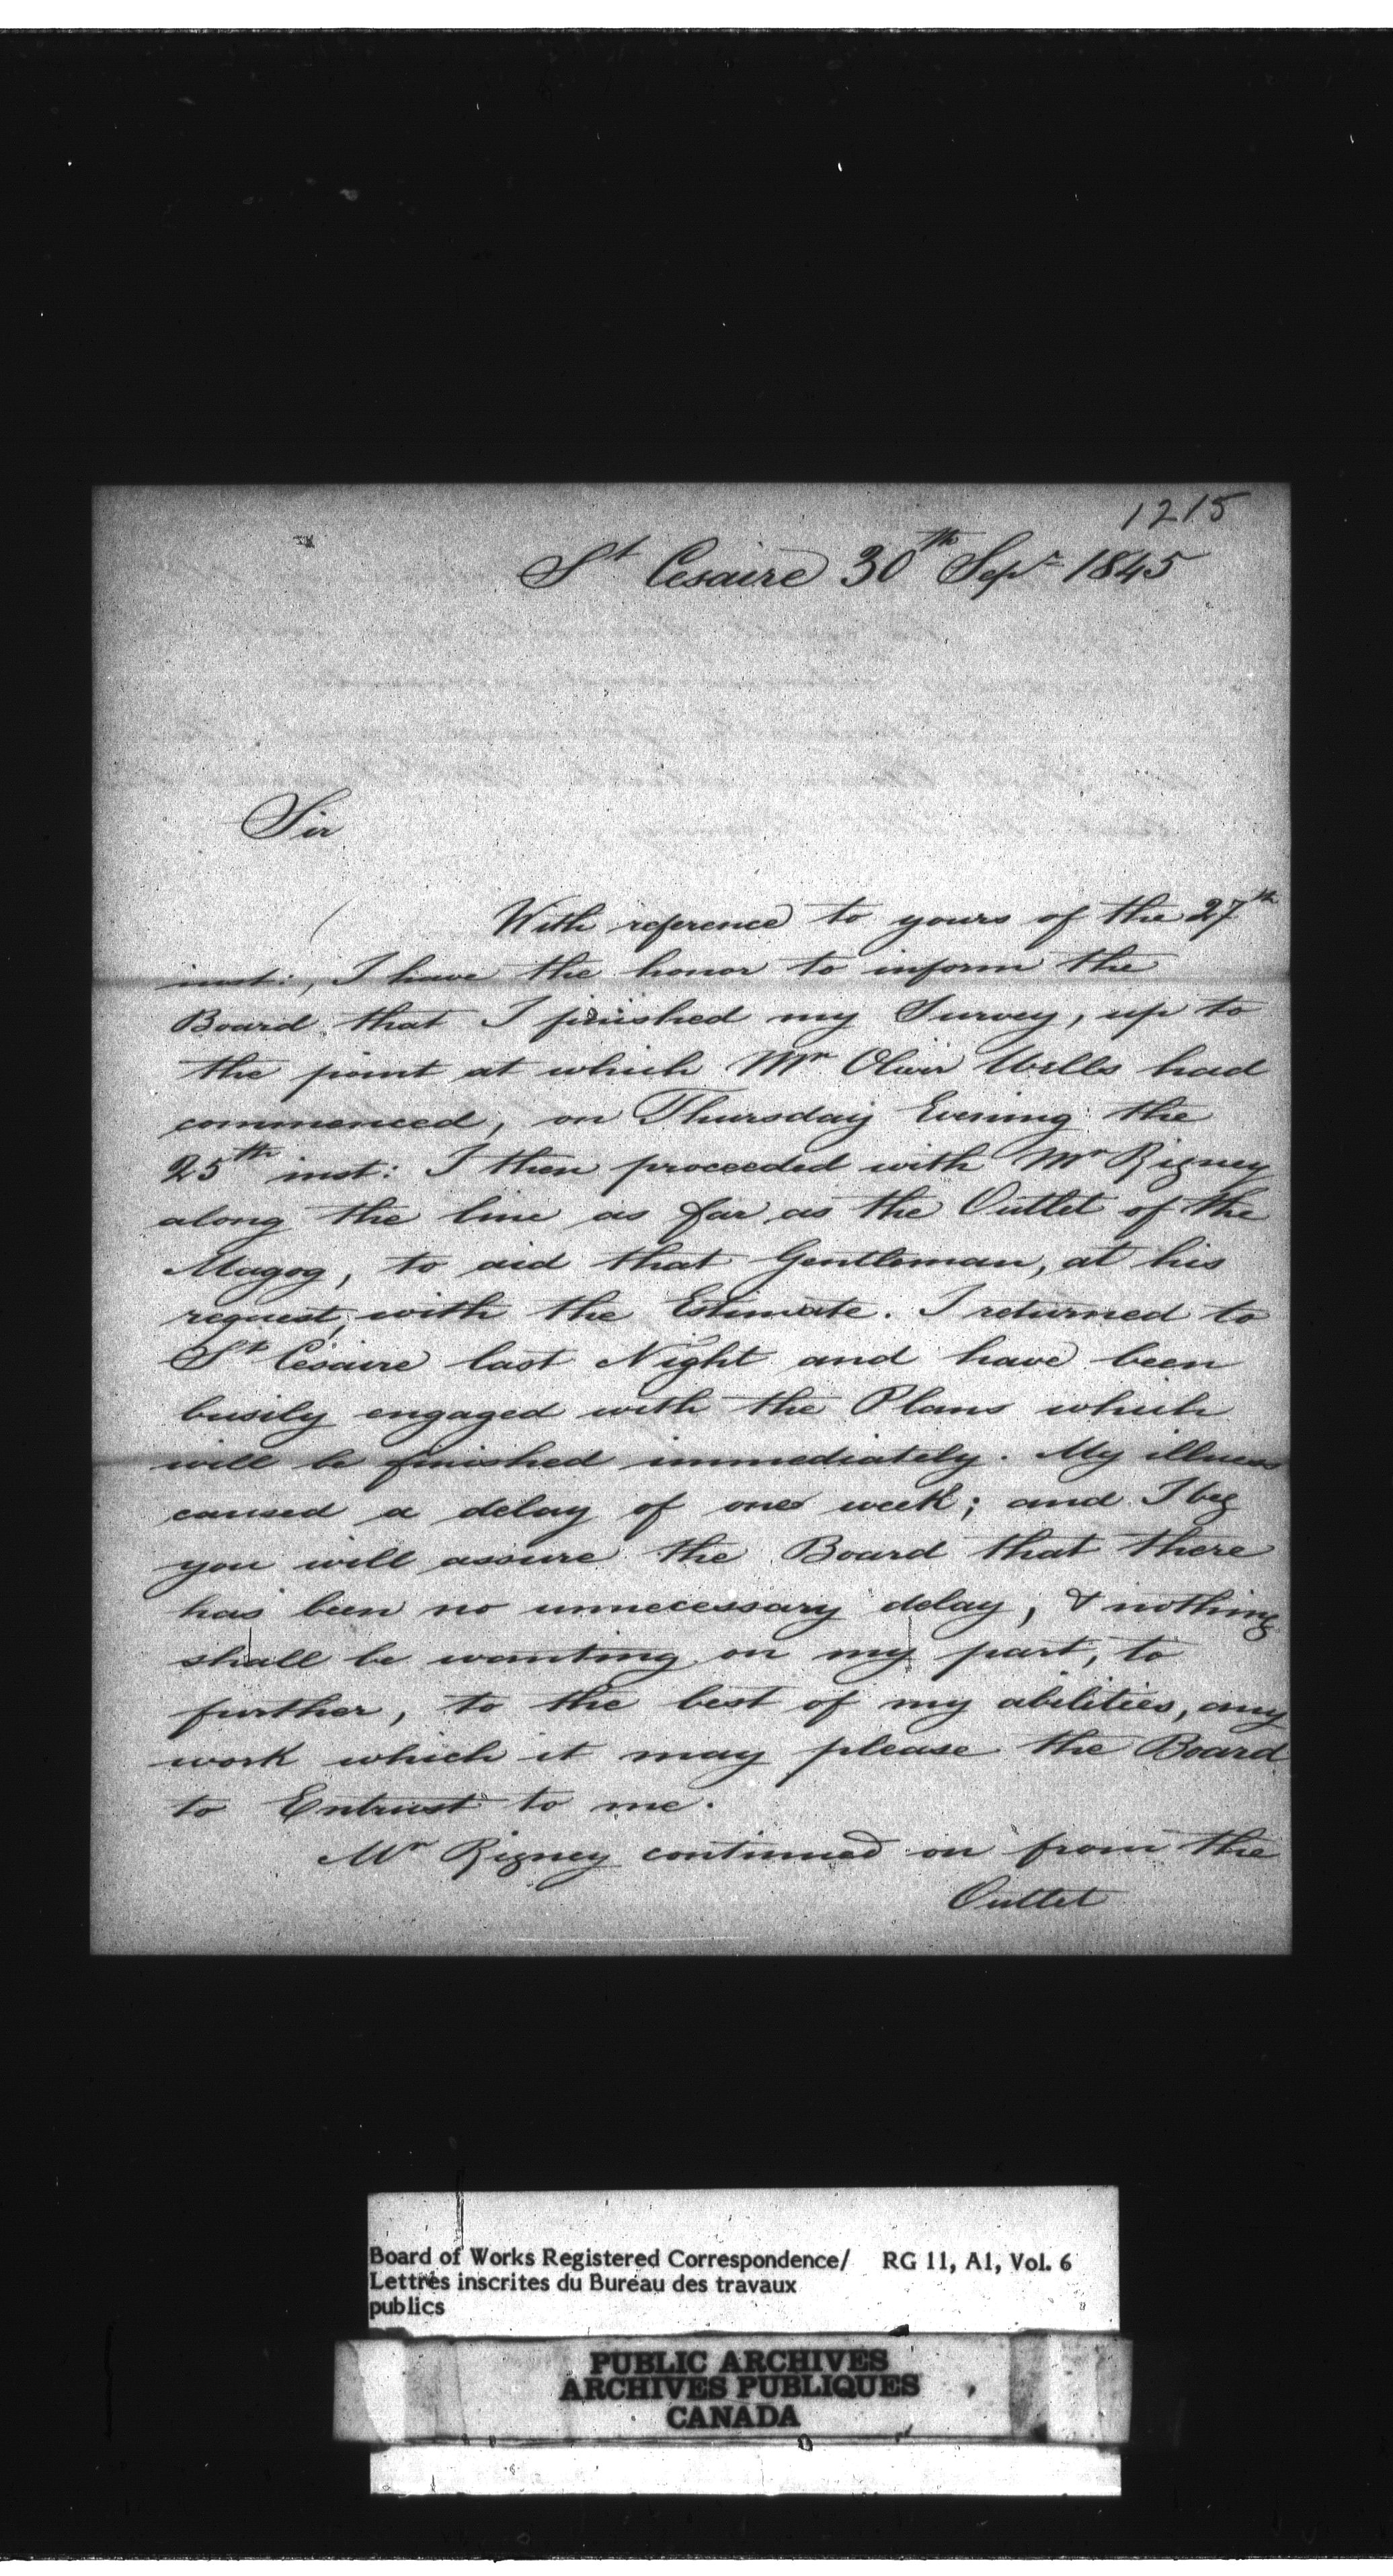 1215
St Cesaire 30th Sepr 1845
Sir
With reference to yours of the 27th
inst:, I have the honor to inform the
Board that I finished my Survey, up to
the point at which Mr Oliver Wells had
commenced, on Thursday Evening the
25th inst: I then proceeded with Mr Rigney
along the line as far as the Outlet of the
Magog, to aid that Gentleman, at his
request, with the Estimate. I returned to
St Césaire last Night and have been
busily engaged with the Plans which
will be finished immediately. My illness
caused a delay of one week; and I beg
you will assure the Board that there
has been no unnecessary delay, & nothing
shall be wanting on my part, to
further, to the best of my abilities, any
work which it may please the Board
to Entrust to me.
Mr Rigney continued on from the
Outlet
Board of Works Registered Correspondence/ RG 11, A1, Vol. 6
Lettres inscrites du Bureau des travaux
publics
PUBLIC ARCHIVES
ARCHIVES PUBLIQUES
CANADA